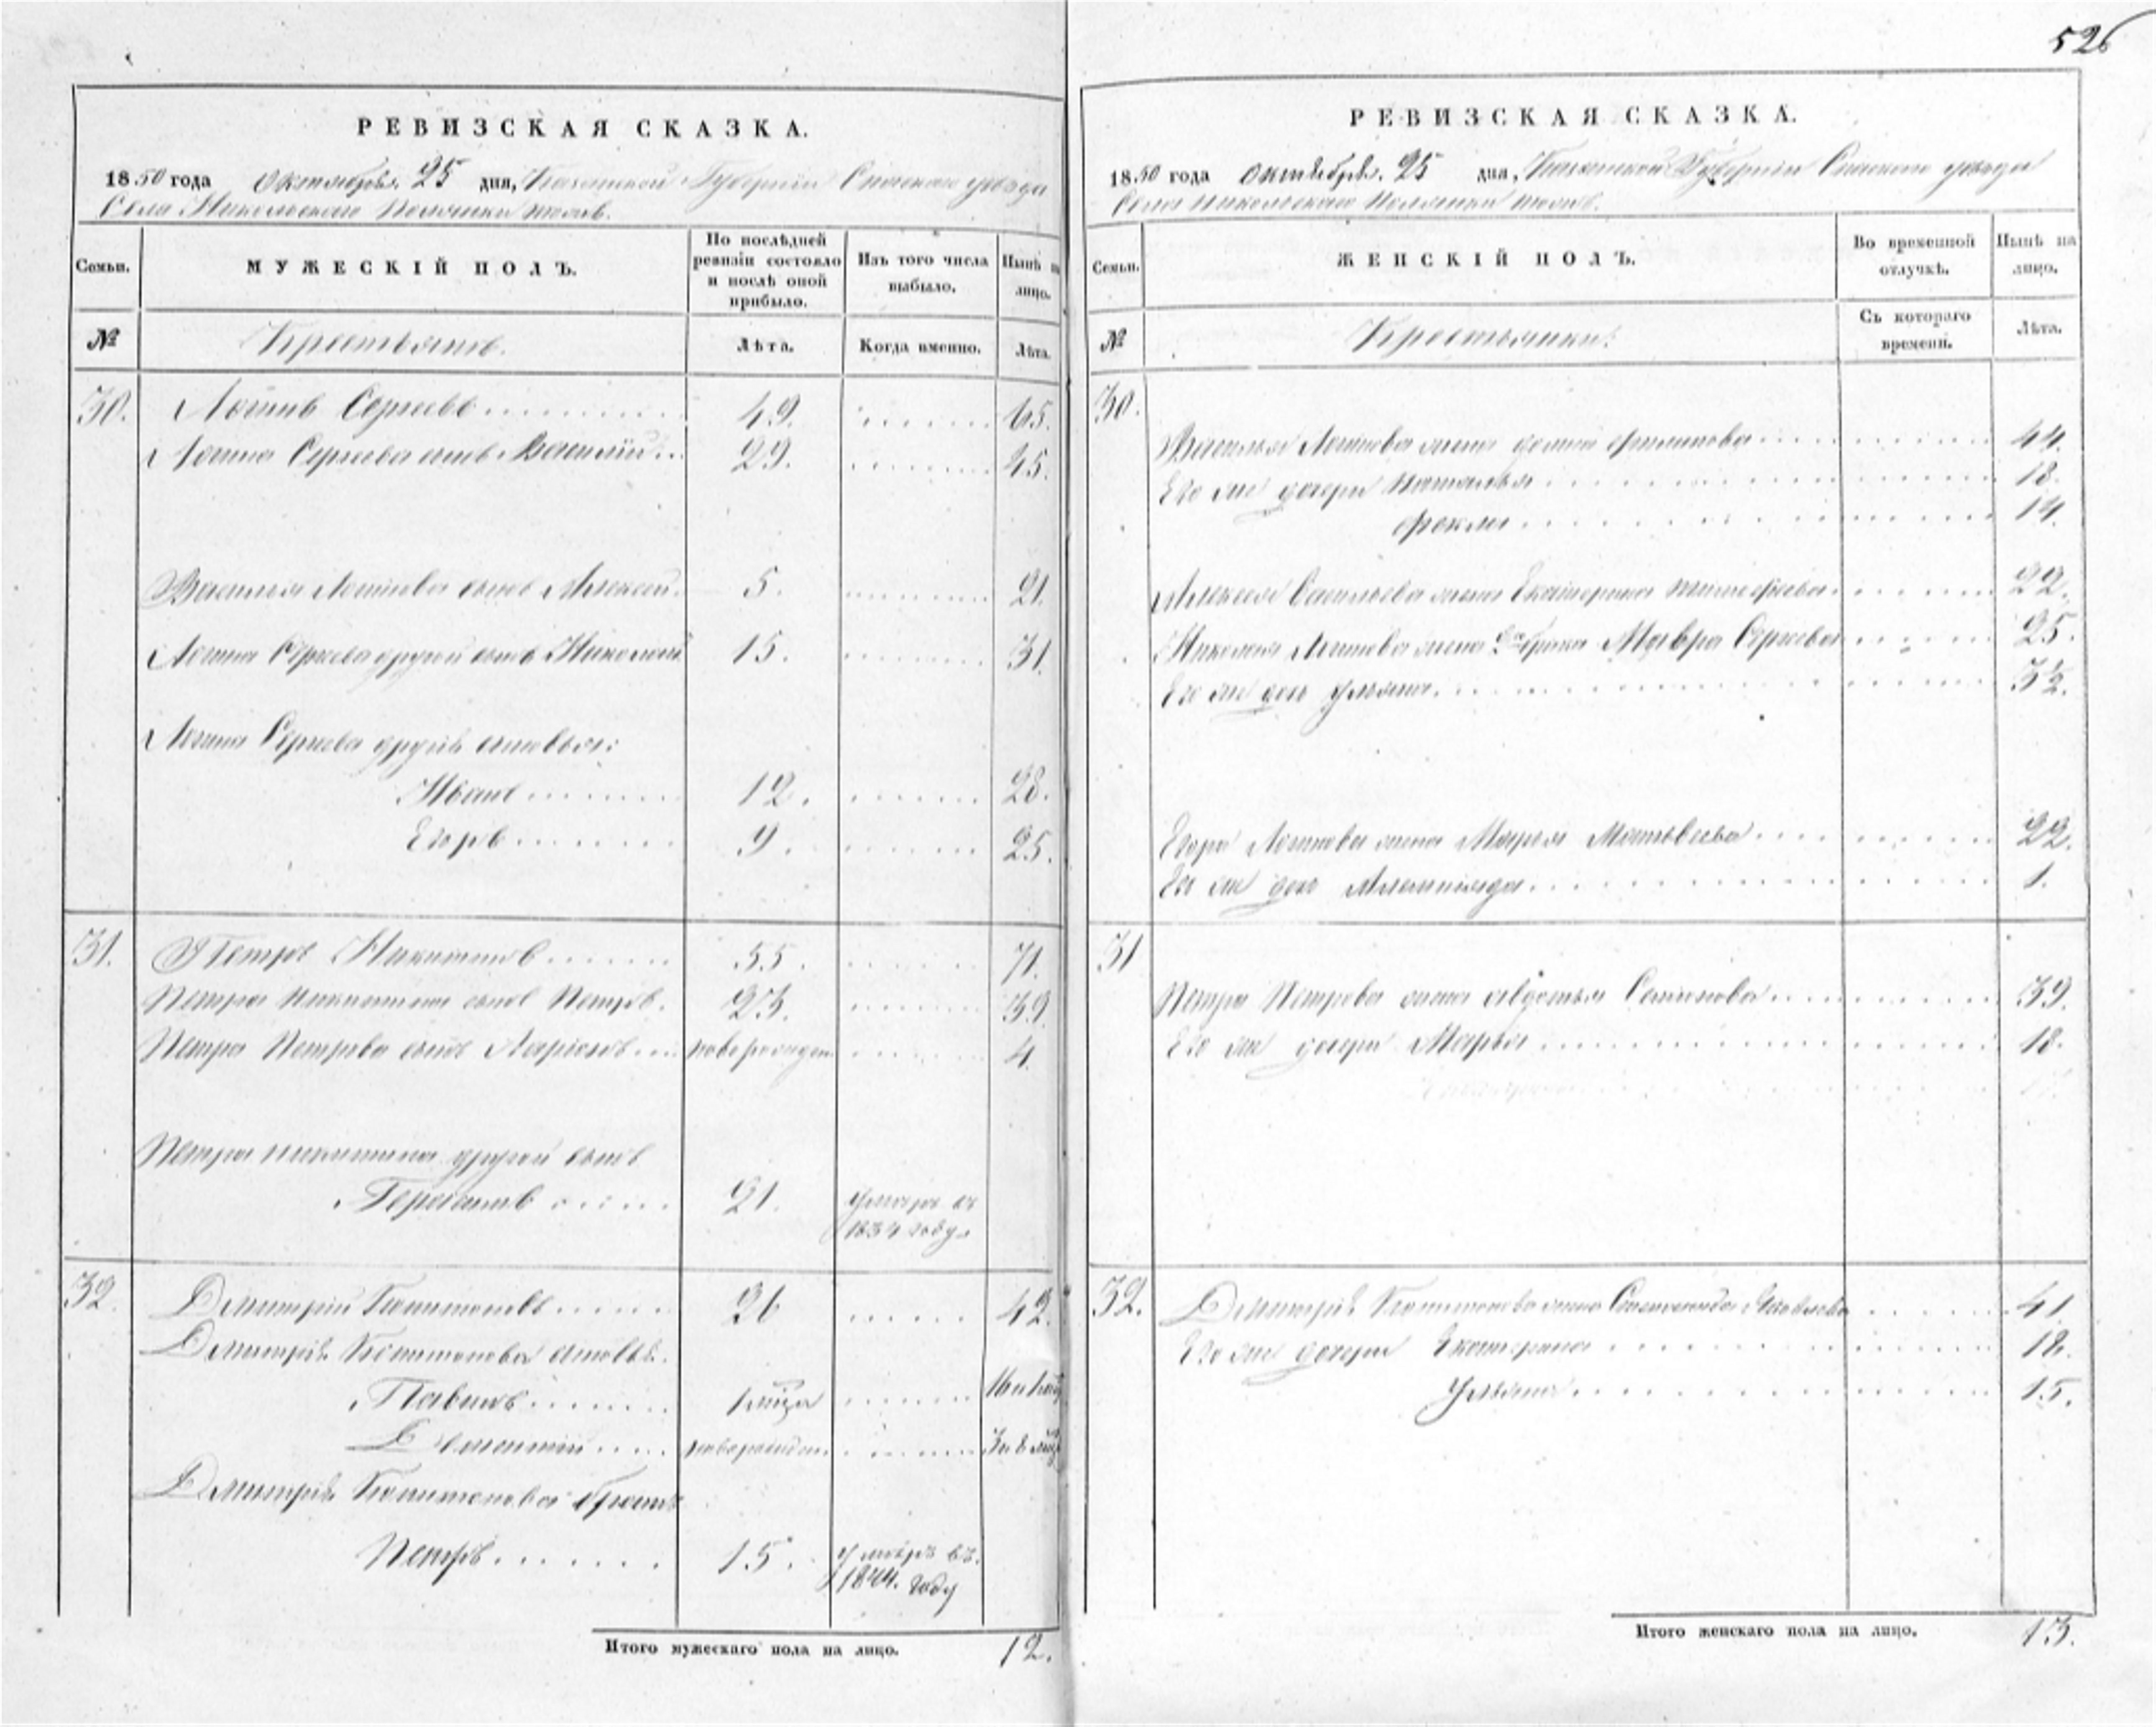 526
РЕВИЗСКАЯ СКАЗКА.
1850 года Октября 25 дня, Казанской Губернии Спаскаго уѣзда
Села Никольскаго Полянки тожъ.
Семьи.
МУЖЕСКІЙ ПОЛЪ.
По послѣдней ревизіи состояло и послѣ оной прибыло.
Изъ того числа выбыло.
Нынѣ на лицо.
№
Крестьянъ.
Лѣта.
Когда именно.
Лѣта.
30. Логинъ Сергѣевъ 49. 65.
Логина Сергѣева сынъ Василій 29. 45.
Василья Логинова сынъ Алексей 5. 21.
Логина Сергѣева другой сынъ Николай 15. 31.
Логина Сергѣева другіе сыновья:
Иванъ 12. 28.
Егоръ 9. 25.
31. Петръ Никитинъ 55. 71.
Петра Никитина сынъ Петръ. 23. 39.
Петра Петрова сынъ Ларіонъ новорожден 4.
Петра Никитина другой сынъ
Герасимъ 21. умеръ въ 1834 году
32. Дмитрий Капитоновъ 26 42.
Дмитрія Капитонова сыновья.
Павилъ 1 мѣца 16 и 1 мѣц
Дементий новорожден 3 и 8 мѣц
Дмитрія Капитонова братъ
Петръ 15. умеръ въ 1844. году
Итого мужескаго пола на лицо. 12.
РЕВИЗСКАЯ СКАЗКА.
1850 года октября 25 дня, Казанской Губернии Спаскаго уѣзда
Села Никольскаго Полянки тожъ.
Семьи.
ЖЕНСКІЙ ПОЛЪ.
Во временной отлучкѣ.
Нынѣ на лицо.
№
Крестьянки:
Съ котораго времени.
Лѣта.
30.
Василья Логинова жена филипова 44.
Его же дочери Наталья 18.
Фекла 14.
Алексея Васильева жена Екатерина Тимофеева 22.
Николая Логинова жена брака Мавра Сергѣева 25.
Его же дочь Ульяна.
Егора Логинова жена Марья Матвѣева 22.
Его же дочь 1.
31
Петра Петрова жена Авдотья Семенова 39.
Его же дочери Марья 18.
32. Дмитрія Капитонова жена Яковлева 41
Его же дочери Екатерина 18.
Ульяна 15.
Итого женскаго пола на лицо. 13.